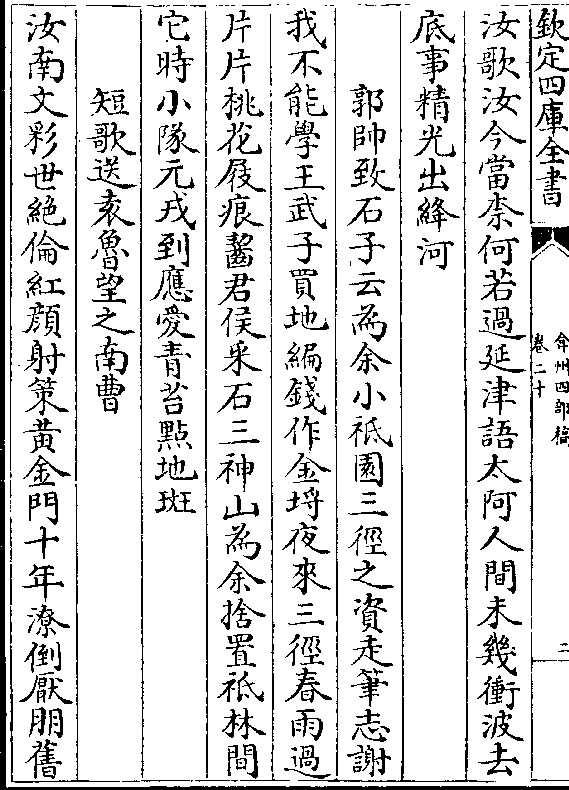 欽定四庫全書
弇州四部稿
卷二十
二
汝歌汝今當柰何若過延津語太阿人間未幾衝波去
底事精光出絳河
郭帥致石子云為余小祗園三徑之資走筆志謝
我不能學王武子買地編錢作金埒夜來三徑春雨過
片片桃花屐痕齧君侯采石三神山為余捨置祗林間
它時小隊元戎到應愛青苔點地斑
短歌送袁魯望之南曹
汝南文彩世絕倫紅顏射策黃金門十年潦倒厭朋舊